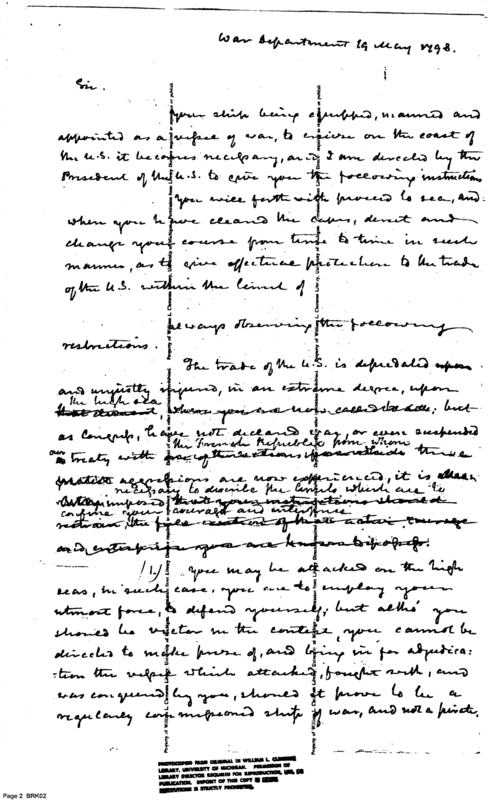 War Department 19 May 1798.
Sir.
your ship being equipped, manned and
appointed as a vessel of war, to cruise on the coast of
the U.S. it becomes necessary, and I am directed by the
President of the U.S. to give you the following instructions
You will forth with proceed to sea, and
when you have cleared the capes, direct and
change your course from time to time in such
manner, as to give effectual protection to the trade
of the U.S. within the limit of
always observing the following
restrictions.
The trade of the U.S. is depredated upon
and unjustly injured, in an extreme degree, upon
the high sea
where you are now called to but
as Congress, have not declared war, or even suspended
the French Republic from whom
our treaty with these
aggressions are now experienced, it is
necessary to describe the limits which are to
imposed that your instructions should
confine your courage and enterprise
restrain the
and enterprise you are known to possess.
(1.) You may be attacked on the high
seas, in such case, you are to employ your
utmost force, to defend yourself; but altho' you
should be victor in the contest, you cannot be
directed to make prize of, and bring in for adjudica:
:tion the vessel which attacked, fought with, and
was conquered by you, should it prove to be a
regularly commissioned ship of war, and not a pirate.
PHOTOCOPIED FROM ORIGINAL IN WILLIAM L. CLEMENTS
LIBRARY, UNIVERSITY OF MICHIGAN. PERMISSION OF
LIBRARY DIRECTOR REQUIRED FOR REPRODUCTION, OR
PUBLICATION. DEPOSIT OF THIS COPY IN OTHER
INSTITUTIONS IS STRICTLY PROHIBITED.
Page 2 BRK02